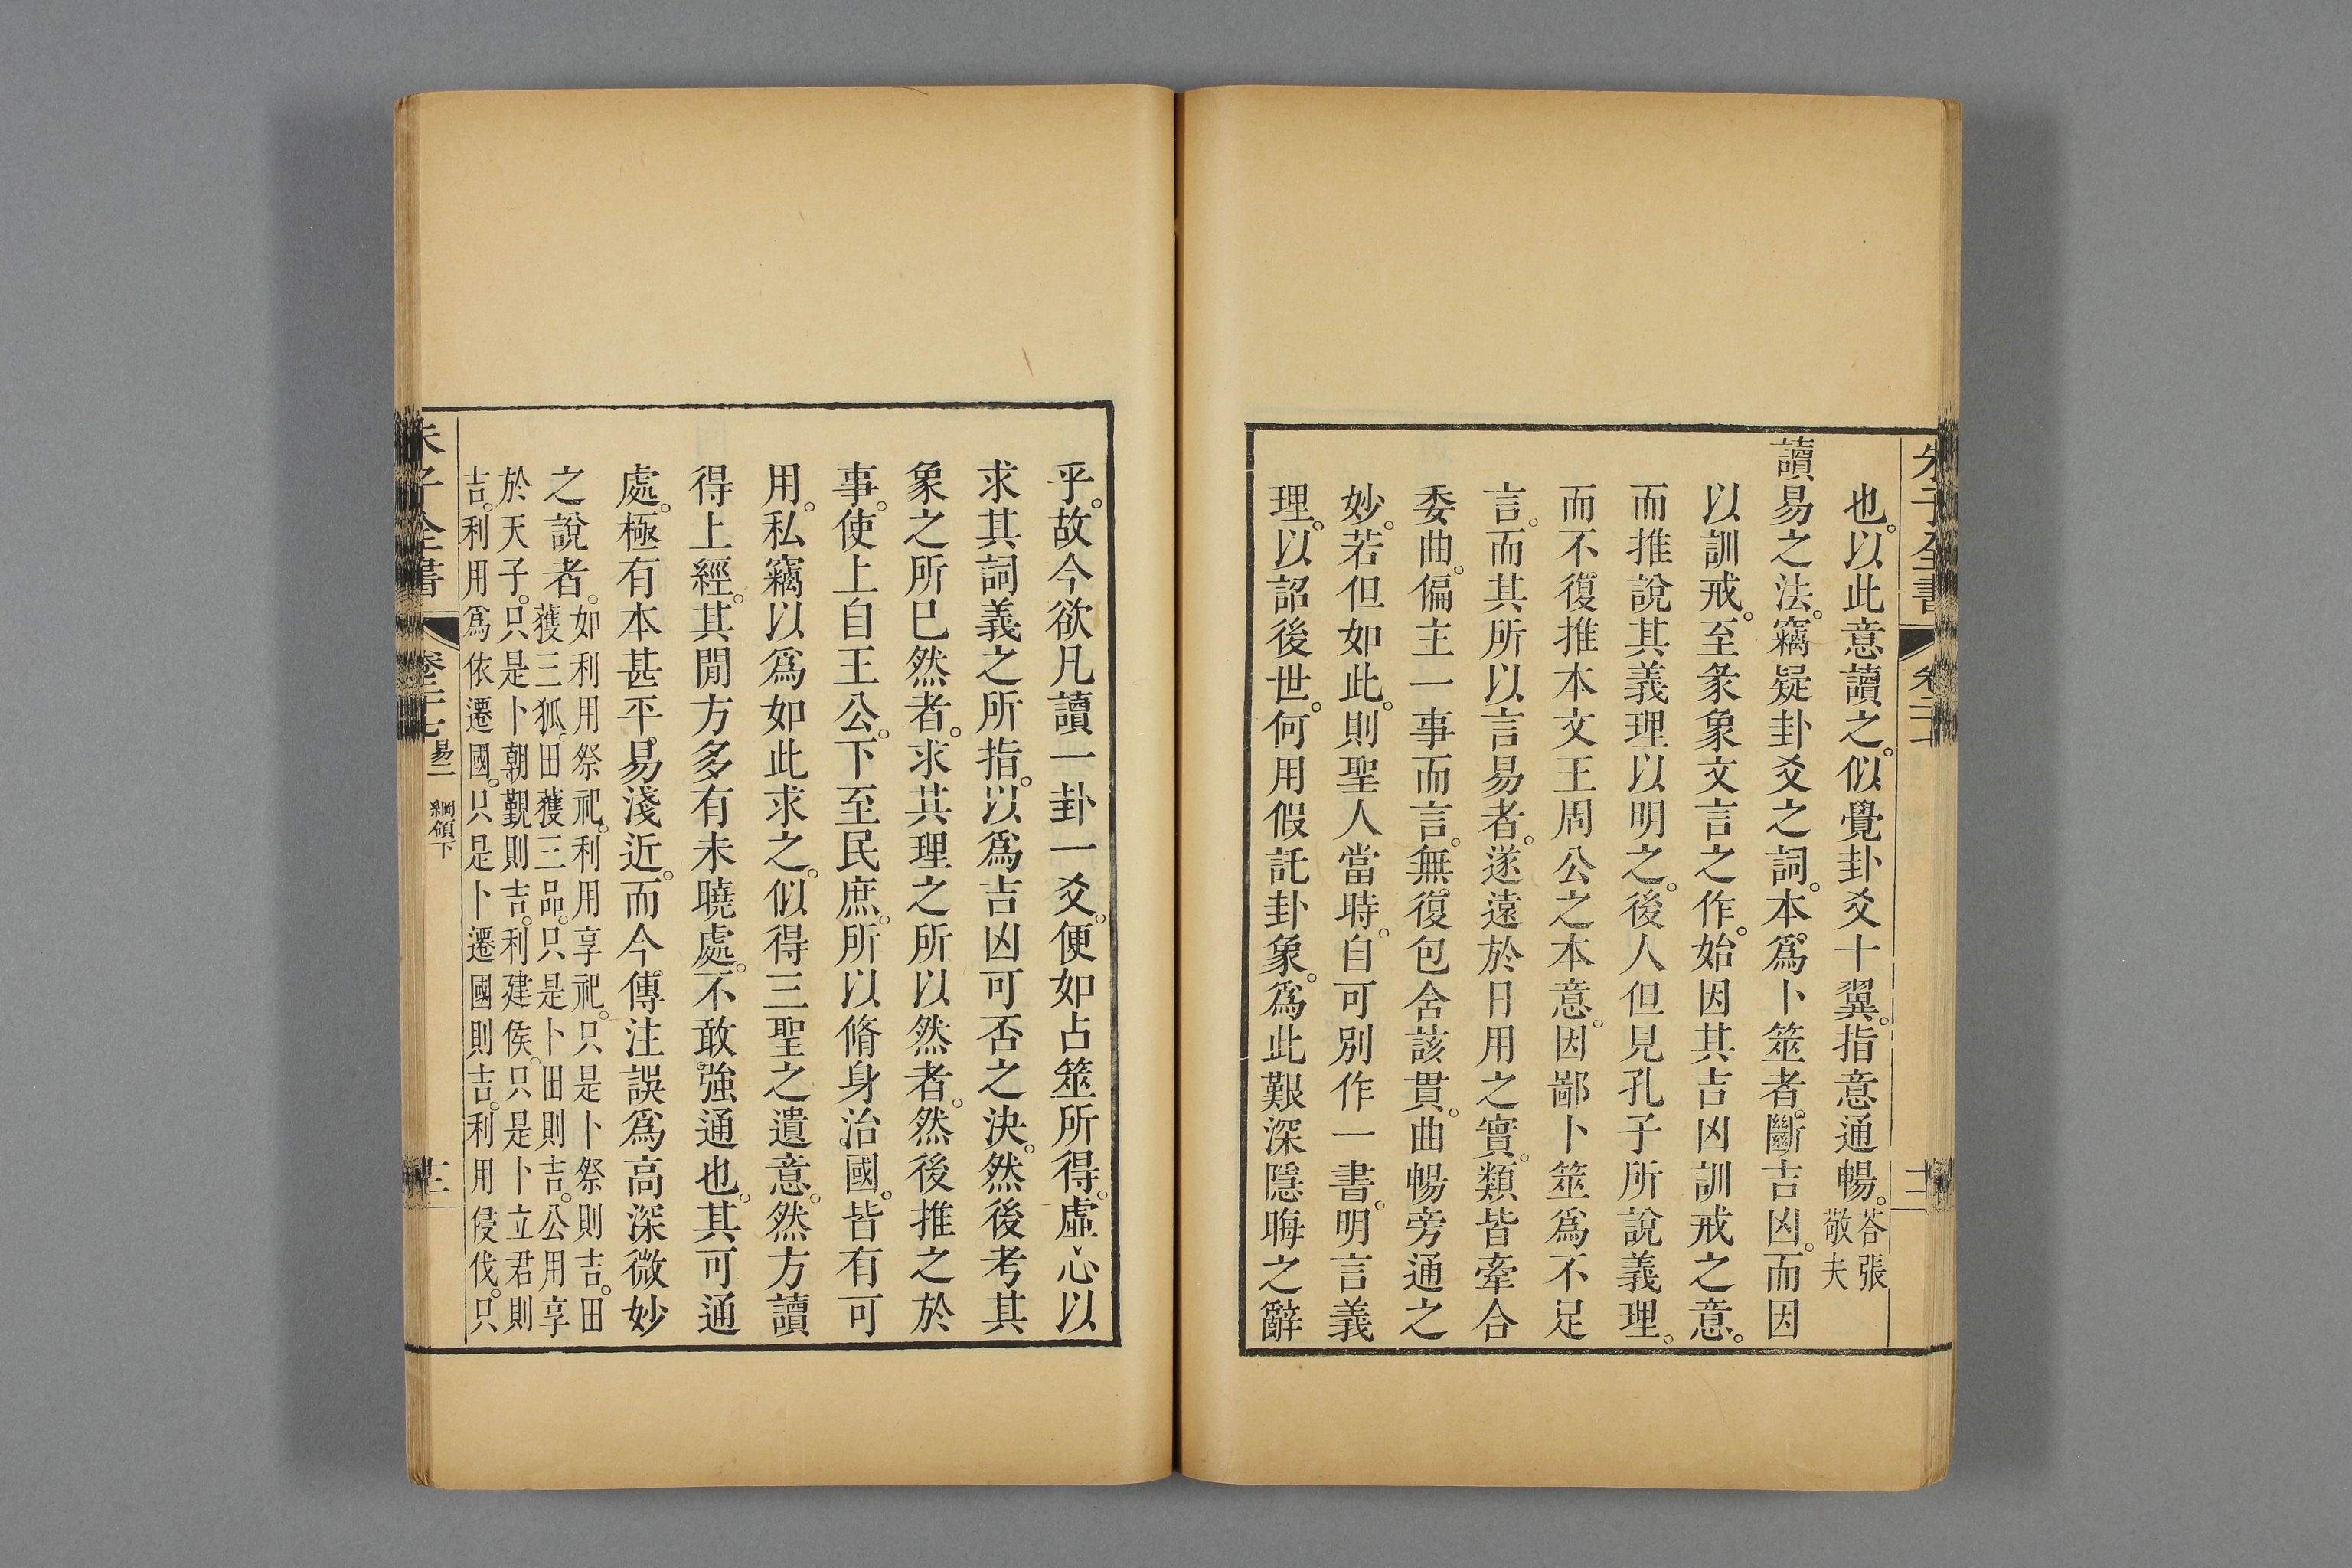 朱子全書 卷二十
也。以此意讀之。似覺卦爻十翼。指意通暢。荅張敬夫
讀易之法。竊疑卦爻之詞。本爲卜筮者。斷吉凶。而因
以訓戒。至彖象文言之作。始因其吉凶訓戒之意。
而推說其義理以明之。後人但見孔子所說義理。
而不復推本文王周公之本意。因鄙卜筮爲不足
言。而其所以言易者。遂遠於日用之實。類皆牽合
委曲。偏主一事而言。無復包含該貫。曲暢旁通之
妙。若但如此。則聖人當時。自可別作一書。明言義
理。以詔後世。何用假託卦象。爲此艱深隱晦之辭
乎。故今欲凡讀一卦一爻。便如占筮所得。虛心以
求其詞義之所指。以爲吉凶可否之決。然後考其
象之所已然者。求其理之所以然者。然後推之於
事。使上自王公。下至民庶。所以脩身治國。皆有可
用。私竊以爲如此求之。似得三聖之遺意。然方讀
得上經。其閒方多有未曉處。不敢強通也。其可通
處。極有本甚平易淺近。而今傳注誤爲高深微妙
之說者。如利用祭祀。利用享祀。只是卜祭則吉。田
獲三狐。田獲三品。只是卜田則吉。公用享
於天子。只是卜朝覲則吉。利建侯。只是卜立君則
吉。利用爲依遷國。只是卜遷國則吉。利用侵伐。只
朱子全書 卷二十七 易二 綱領下 十三